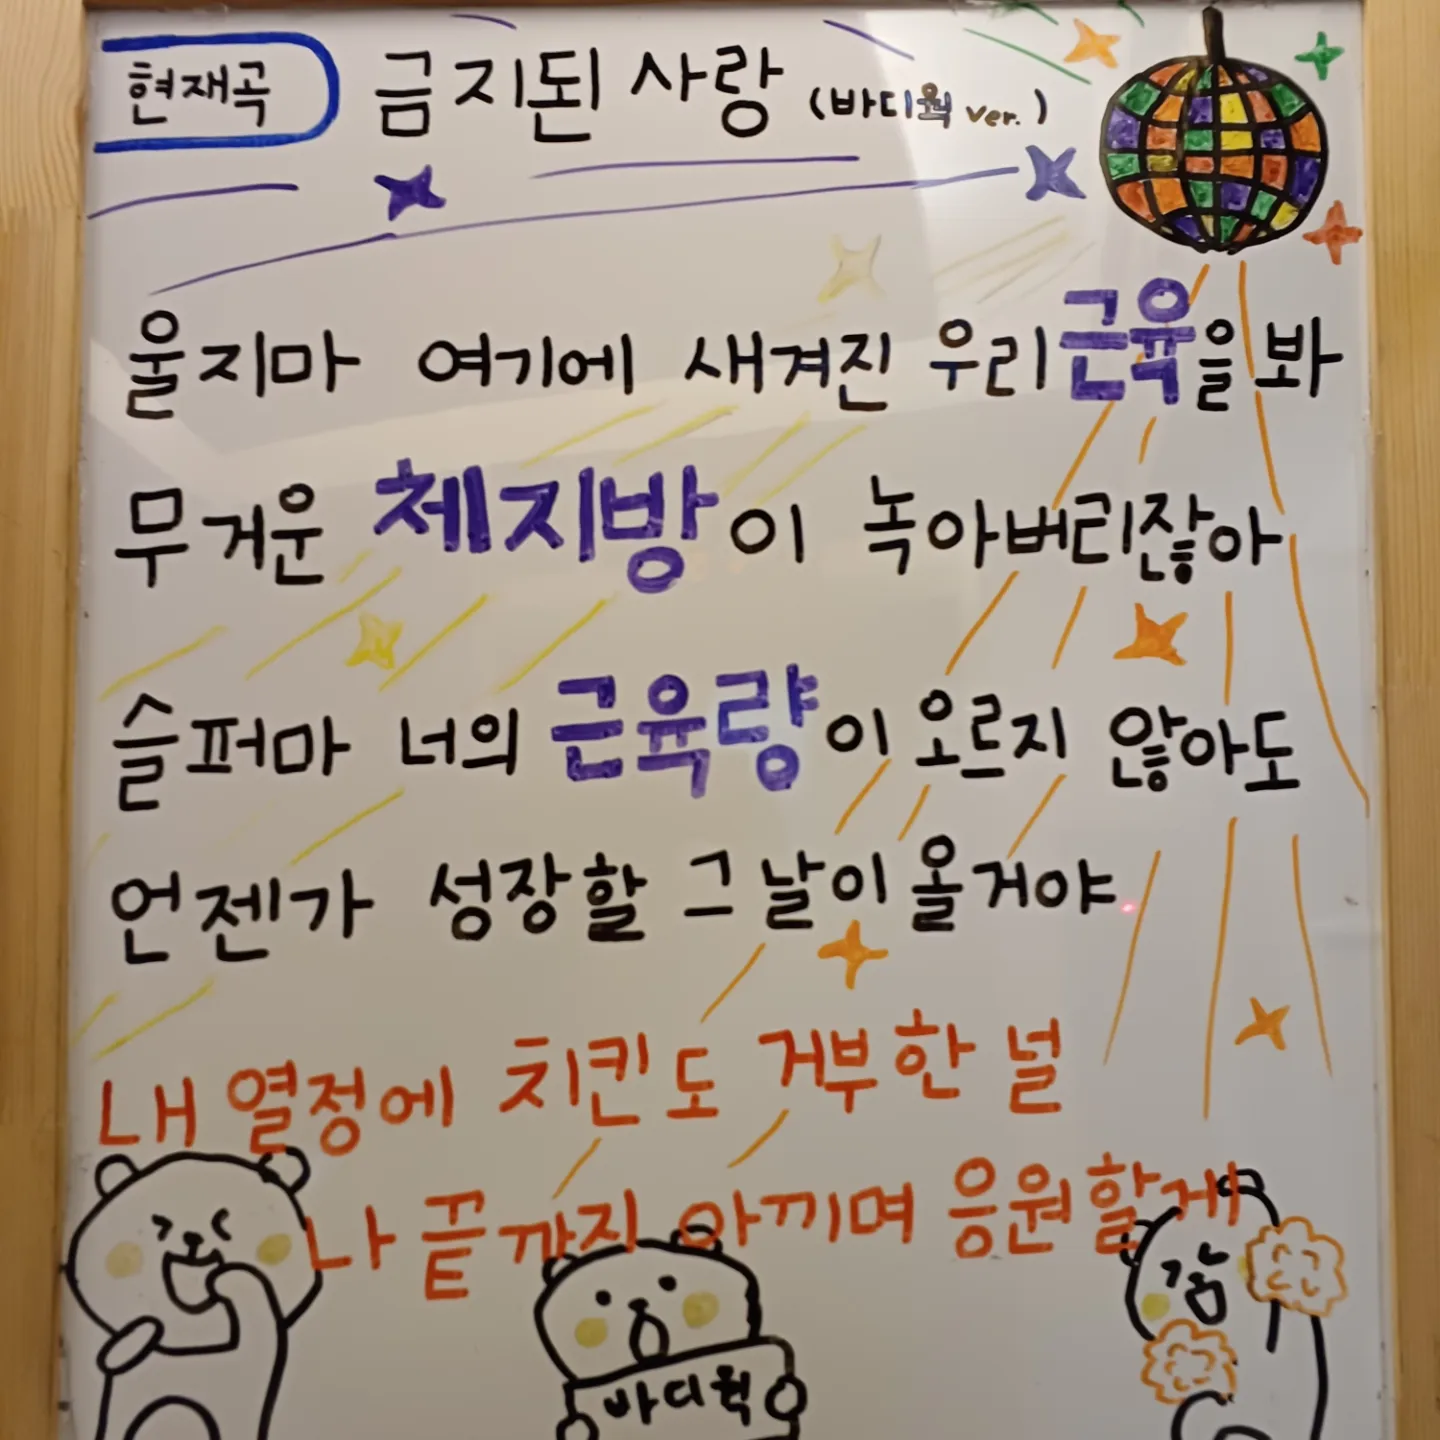 현재곡 금지된 사랑 (바디웍 ver.)
울지마 여기에 새겨진 우리 근육을 봐
무거운 체지방이 녹아버리잖아
슬퍼마 너의 근육량이 오르지 않아도
언젠가 성장할 그날이 올거야
내 열정에 치킨도 거부한 널
나 끝까지 아끼며 응원할게
바디웍